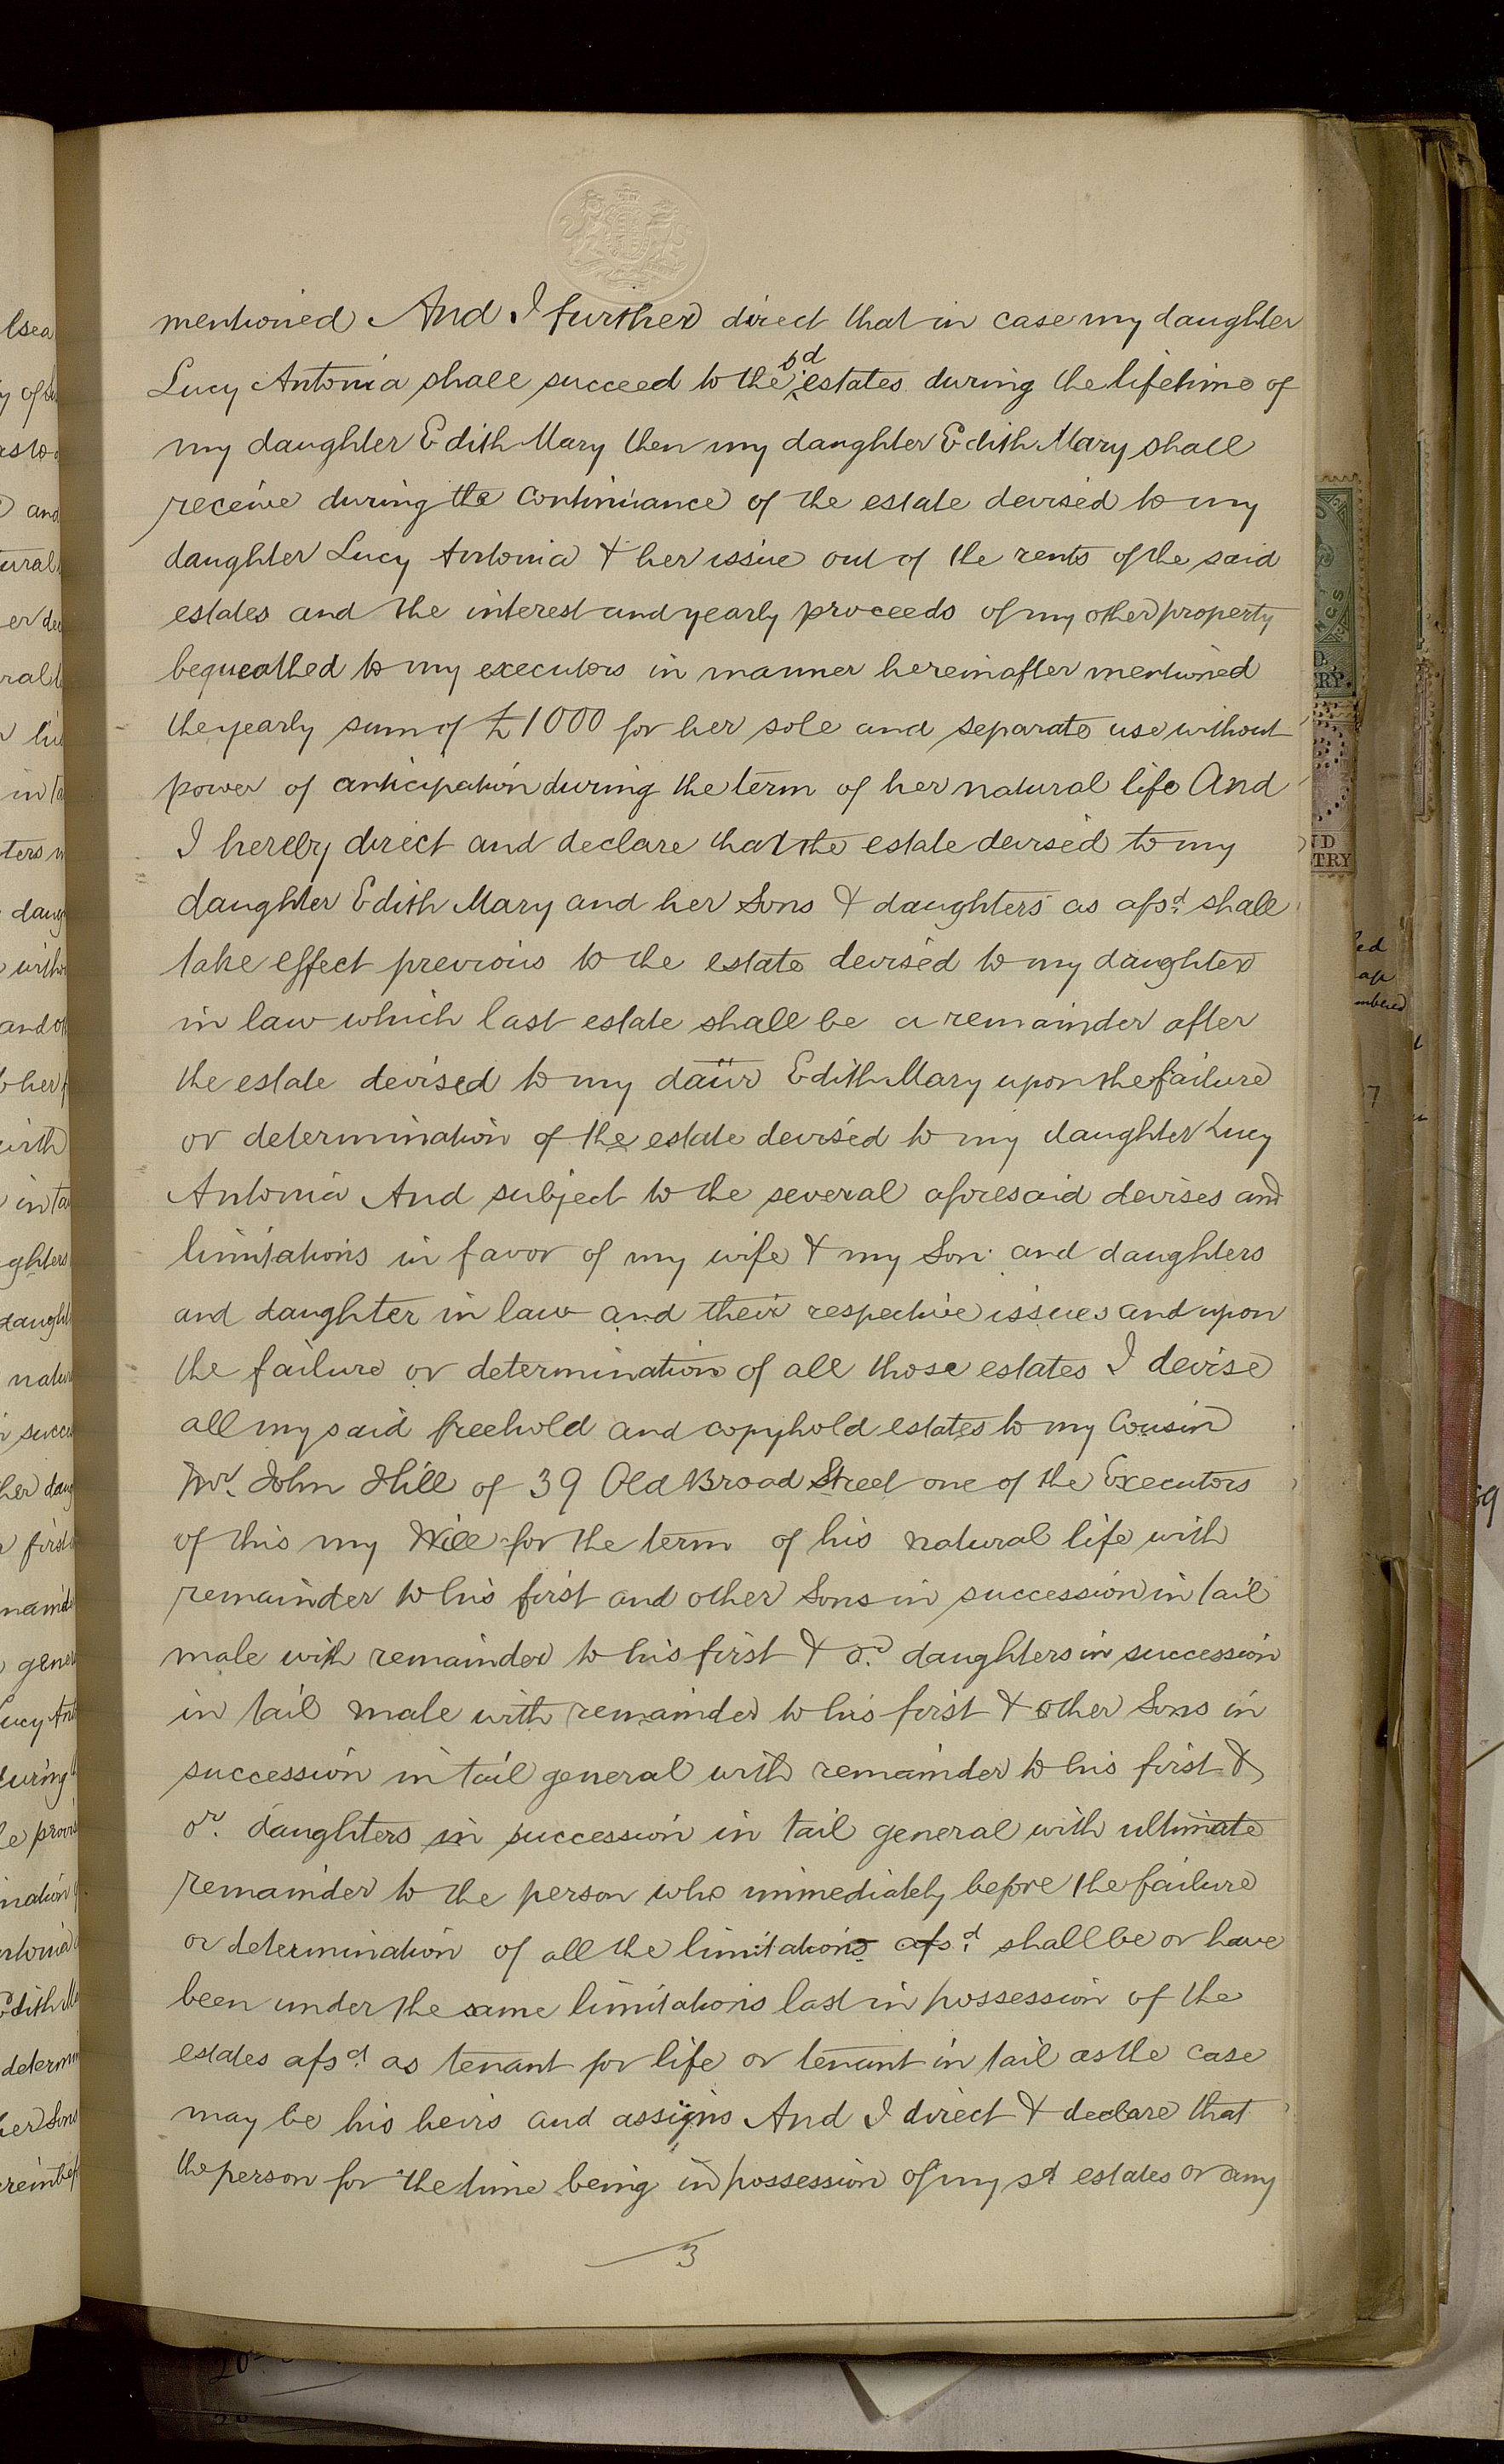 mentioned And I further direct that in case my daughter
Lucy Antonia shall succeed to the sd estates during the lifetime of
my daughter Edith Mary then my daughter Edith Mary shall
receive during the continuance of the estate devised to my
daughter Lucy Antonia & her issue out of the rents of the said
estates and the interest and yearly proceeds of my other property
bequeathed to my executors in manner hereinafter mentioned
the yearly sum of £1000 for her sole and separate use without
power of anticipation during the term of her natural life And
I hereby direct and declare that the estate devised to my
daughter Edith Mary and her Sons & daughters as afsd. shall
take effect previous to the estate devised to my daughter
in law which last estate shall be a remainder after
the estate devised to my daur Edith Mary upon the failure
or determination of the estate devised to my daughter Lucy
Antonia And subject to the several aforesaid devises and
limitations in favor of my wife & my Son and daughters
and daughter in law and their respective issues and upon
the failure or determination of all those estates I devise
all my said freehold and copyhold estates to my Cousin
Mr. John Hill of 39 Old Broad Street one of the Executors
of this my Will for the term of his natural life with
remainder to his first and other Sons in succession in tail
male with remainder to his first & or. daughters in succession
in tail male with remainder to his first & other Sons in
succession in tail general with remainder to his first &
or. daughters in succession in tail general with ultimate
remainder to the person who immediately before the failure
or determination of all the limitations afsd. shall be or have
been under the same limitations last in possession of the
estates afsd. as tenant for life or tenant in tail as the case
may be his heirs and assigns And I direct & declare that
the person for the time being in possession of my sd estates or any
3